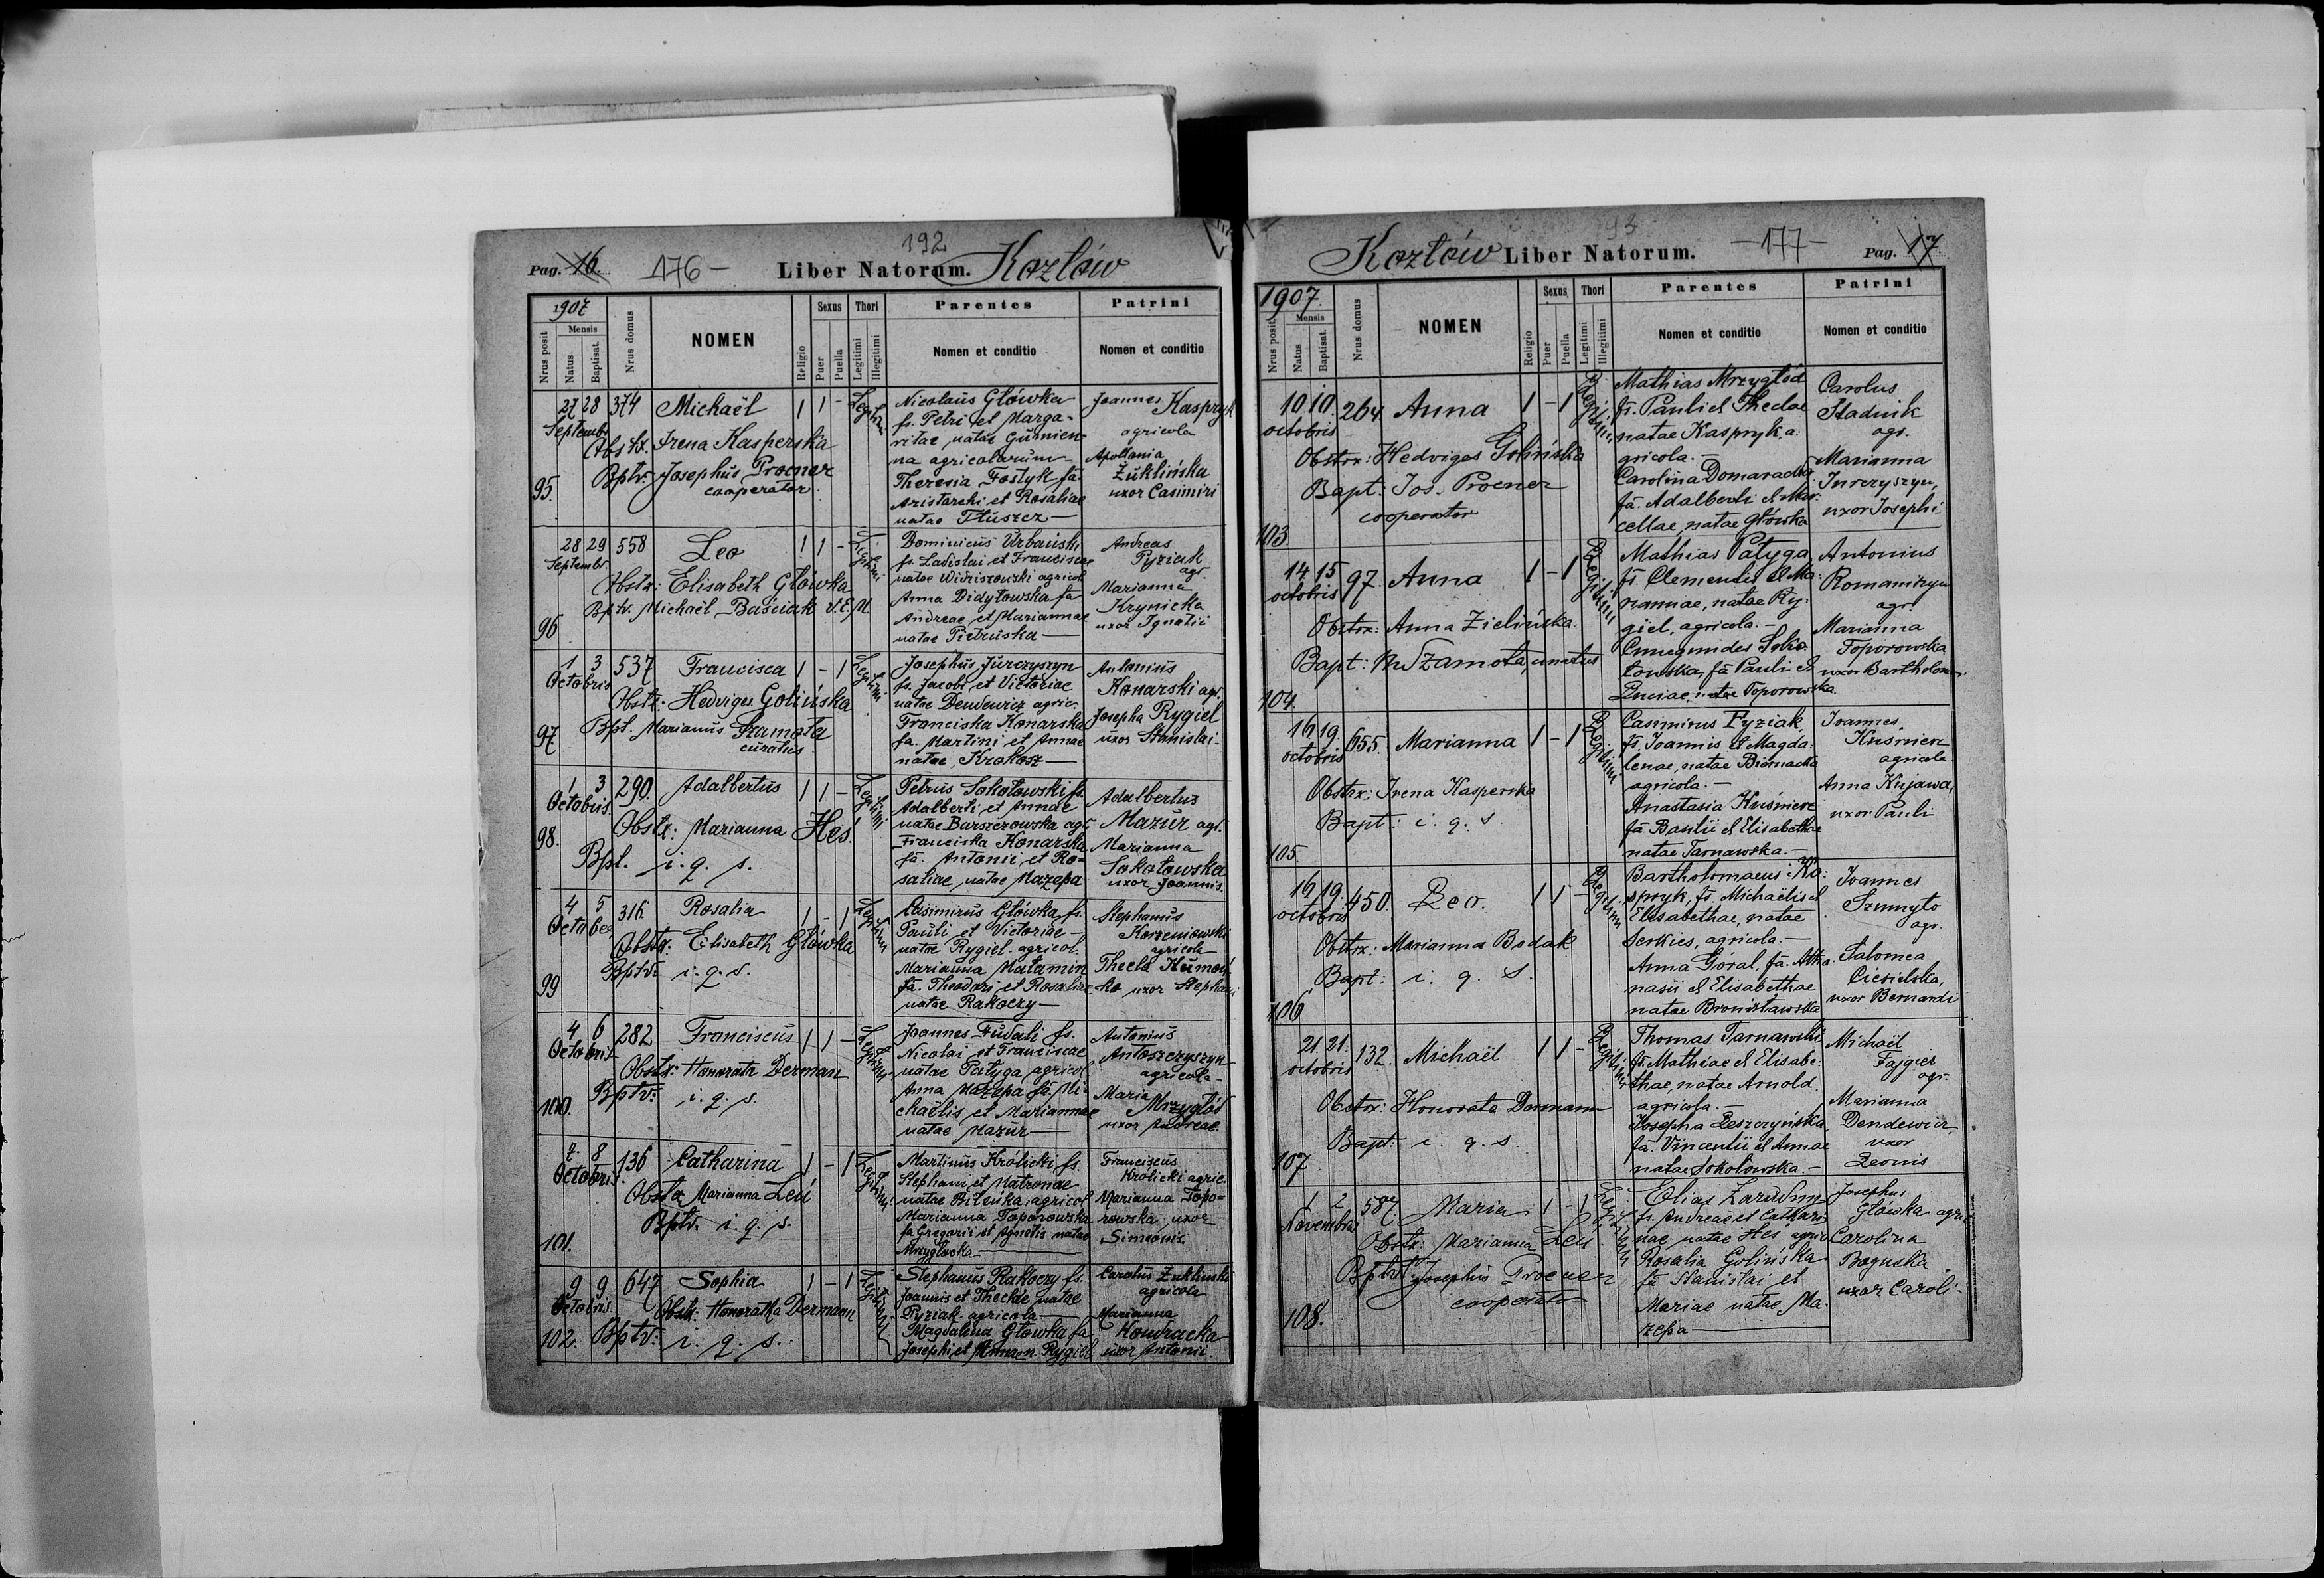 192
Pag. 16. 176 - Liber Natorum. Kozłów
1907
Nrus posit
Mensis
Natus
Baptisat.
Nrus domus
NOMEN
Religio
Sexus
Puer
Puella
Thori
Legitimi
Illegitimi
Parentes
Nomen et conditio
Patrini
Nomen et conditio
27 28 374 Michaël 1 1 - Legitimi
Septembr.
Obstx. Irena Kasperska
Bptr. Josephus Procner
cooperator
95.
Nicolaus Główka
fs. Petri et Marga-
ritae natae
na agricolarum -
Theresia Fostyk fa
Aristarchi et Rosaliae
natae Tłuszcz -
Joannes Kaspryk
agricola
Apollonia
Żuklińska
uxor Casimiri
28 29 558 Leo 1 1 - Legitimi
Septembr.
Obstx: Elisabeth Główka
Bptr. Michaël Baściak
96
Dominicus Urbański
fs. Ladislai et Franciscae
natae agricol
Anna Didyłowska fa
Andreae et Mariannae
natae Pietruska -
Andreas
Pyziak
agr.
Marianna
Krynicka
uxor Ignatii
1 3 537 Francisca 1 - 1 Legitimi
Octobris
Obstx: Hedviges Golińska
Bpt. Marianus Szamota
curatus
97
Josephus Jurczyszyn
fs. Jacobi et Victoriae
natae Dendewicz agric.
Franciska Konarska
fa. Martini et Annae
natae Krokosz -
Antonius
Konarski agr.
Josepha Rygiel
uxor Stanislai -
1 3 290. Adalbertus 1 1 - Legitimi
Octobris.
Obstx: Marianna Heś.
Bpt. i. q. s.
98.
Petrus Sokołowski fs.
Adalberti et Annae
natae Barszczowska agr.
Franciska Konarska
fa. Antonii et Ro=
saliae natae Mazepa
Adalbertus
Mazur agr.
Marianna
Sokołowska
uxor Joannis.
4 5 316 Rosalia 1 - 1 Legitimi
Octobr
Obstx: Elisabeth Główka
Bptr. i. q. s.
99
Casimirus Główka fs.
Pauli et Victoriae -
natae Rygiel agricol.
Marianna Matamin
fa. Theodori et Rosaliae
natae Rakoczy -
Stephanus
Korzeniowski
agricola
Thecla
ko uxor Stephani
4 6 282 Franciscus 1 1 - Legitimi
Octobris
Obstx: Honorata Derman
Bptr: i. q. s.
100.
Joannes Fudali fs.
Nicolai et Franciscae
natae Patyga agricol
Anna Mazepa fa. Mi-
chaëlis et Mariannae
natae Mazur -
Antonius
Antoszczyszyn
agricola -
Maria
Mrzygłód
uxor Andreae.
7 8 136 Catharina 1 - 1 Legitimi
Octobris.
Obstx Marianna Leń
Bptr. i. q. s.
101.
Martinus Królicki fs.
Stephani et Matronae
natae Bilińska, agricol
Marianna Toporowska
fa Gregorii et Agnetis natae
Mrzygłocka -
Franciscus
Królicki agric.
Marianna Topo=
rowska uxor
Simeonis.
9 9 647 Sophia 1 - 1 Legitimi
Octobris.
Obstx: Honoratka Dermann
Bptr: i. q. s.
102.
Stephanus Rakoczy fs.
Joannis et Theclae natae
Pyziak agricola -
Magdalena Główka fa
Josephi et Rygiel
Carolus Żukliński
agricola
Marianna
Kondracka
uxor Antonii.
93
Kozłów Liber Natorum. - 177 - Pag. 17.
1907.
Nrus posit.
Mensis
Natus
Baptisat.
Nrus domus
NOMEN
Religio
Sexus
Puer
Puella
Thori
Legitimi
Illegitimi
Parentes
Nomen et conditio
Patrini
Nomen et conditio
10 10. 264 Anna 1 - 1 Legitimi
octobris
Obstrx: Hedviges Golińska
Bapt: Jos. Procner
cooperator
103.
Mathias Mrzygłód
fs. Pauli et Theclae
natae Kaspryk, a:
gricola. -
Carolina Domaradzka
fa. Adalberti et Mar:
cellae, natae Główka
Carolus
Stadnik
agr.
Marianna
Jurczyszyn,
uxor Josephi.
14 15 97. Anna 1 - 1 Legitimi
octobris
Obstrx: Anna Zielińska.
Bapt: M. Szamota, curatus
104.
Mathias Patyga
fs. Clementis et Ma:
riannae, natae Ry:
giel, agricola. -
Cunegundes Soko:
łowska, fa Pauli et
Luciae, natae Toporowska.
Antonius
Romaniszyn
agr.
Marianna
Toporowska
uxor Bartholomaei.
16 19. 655. Marianna 1 - 1 Legitimi
octobris
Obstrx: Irena Kasperska
Bapt: i. q. s.
105
Casimirus Pyziak,
fs. Joannis et Magda:
lenae, natae Biernacka
agricola. -
Anastasia Kuśnierz
fa Basilii et Elisabethae
natae Tarnawska. -
Joannes
Kuśnierz
agricola
Anna Kujawa,
uxor Pauli
16 19. 450. Leo. 1 1 - Legitimi
octobris
Obstrx: Marianna Bodak
Bapt: i. q. s.
106
Bartholomaeus Ka:
spryk, fs. Michaëlis et
Elisabethae, natae
Serkies, agricola. -
Anna Góral, fa. Atha:
nasii et Elisabethae
natae Bronisławska
Joannes
Szmyto
agr.
Salomea
Ciesielska,
uxor Bernardi
21 21. 132. Michaël 1 1 - Legitimi
octobris
Obstrx: Honorata Dermann
Bapt: i. q. s.
107
Thomas Tarnawski
fs. Mathiae et Elisabe:
thae, natae Arnold,
agricola. -
Josepha Leszczyńska,
fa. Vincentii et Annae
natae Sokołowska. -
Michaël
Fajgier
agr.
Marianna
Dendewicz,
uxor
Leonis
1 2 587 Maria 1 - 1 Legitimi
Novembris
Obstx: Marianna Leń
Bptr: Josephus Procner
cooperator
108.
Elias Zarudny
fs. Andreae et Cathari=
nae natae Heś agric
Rosalia Golińska
fa Stanislai et
Mariae natae Ma-
zepa -
Josephus
Główka agric.
Carolina
Boguska
uxor Caroli -